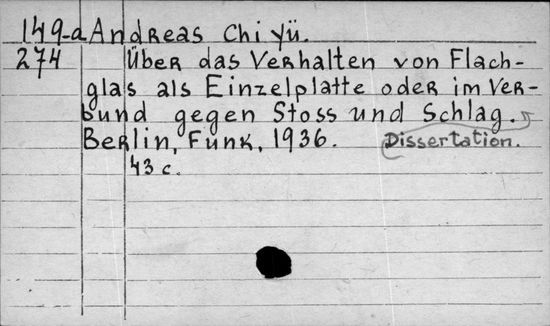 149-a Andreas Chi Yü.
274 Über das Verhalten von Flach-
glas als Einzelplatte oder im Ver-
bund gegen Stoss und Schlag.
Berlin, Funk, 1936. Dissertation.
43 c.